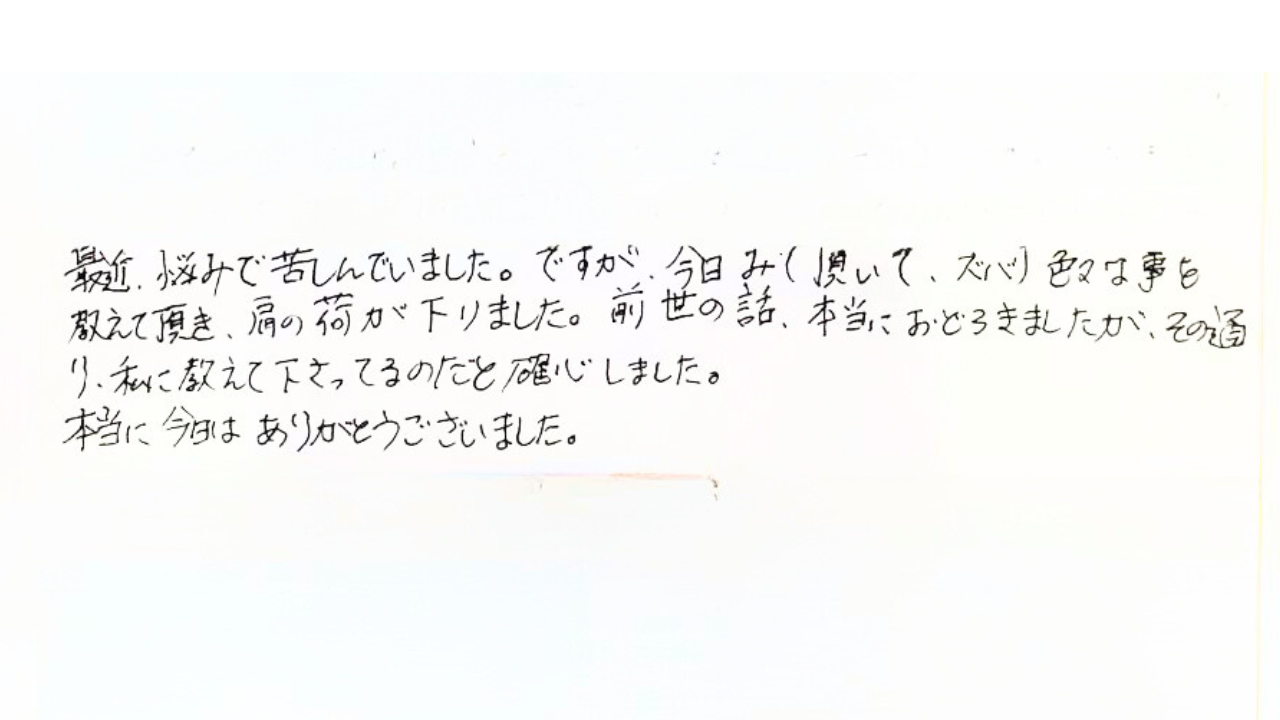 最近、悩みで苦しんでいました。ですが、今日み(頂いて、ズバリ色々な事を
教えて頂き、肩の荷が下りました。前世の話、本当におどろきましたが、その通
り、私に教えて下さってるのだと確心しました。
本当に今日はありがとうございました。